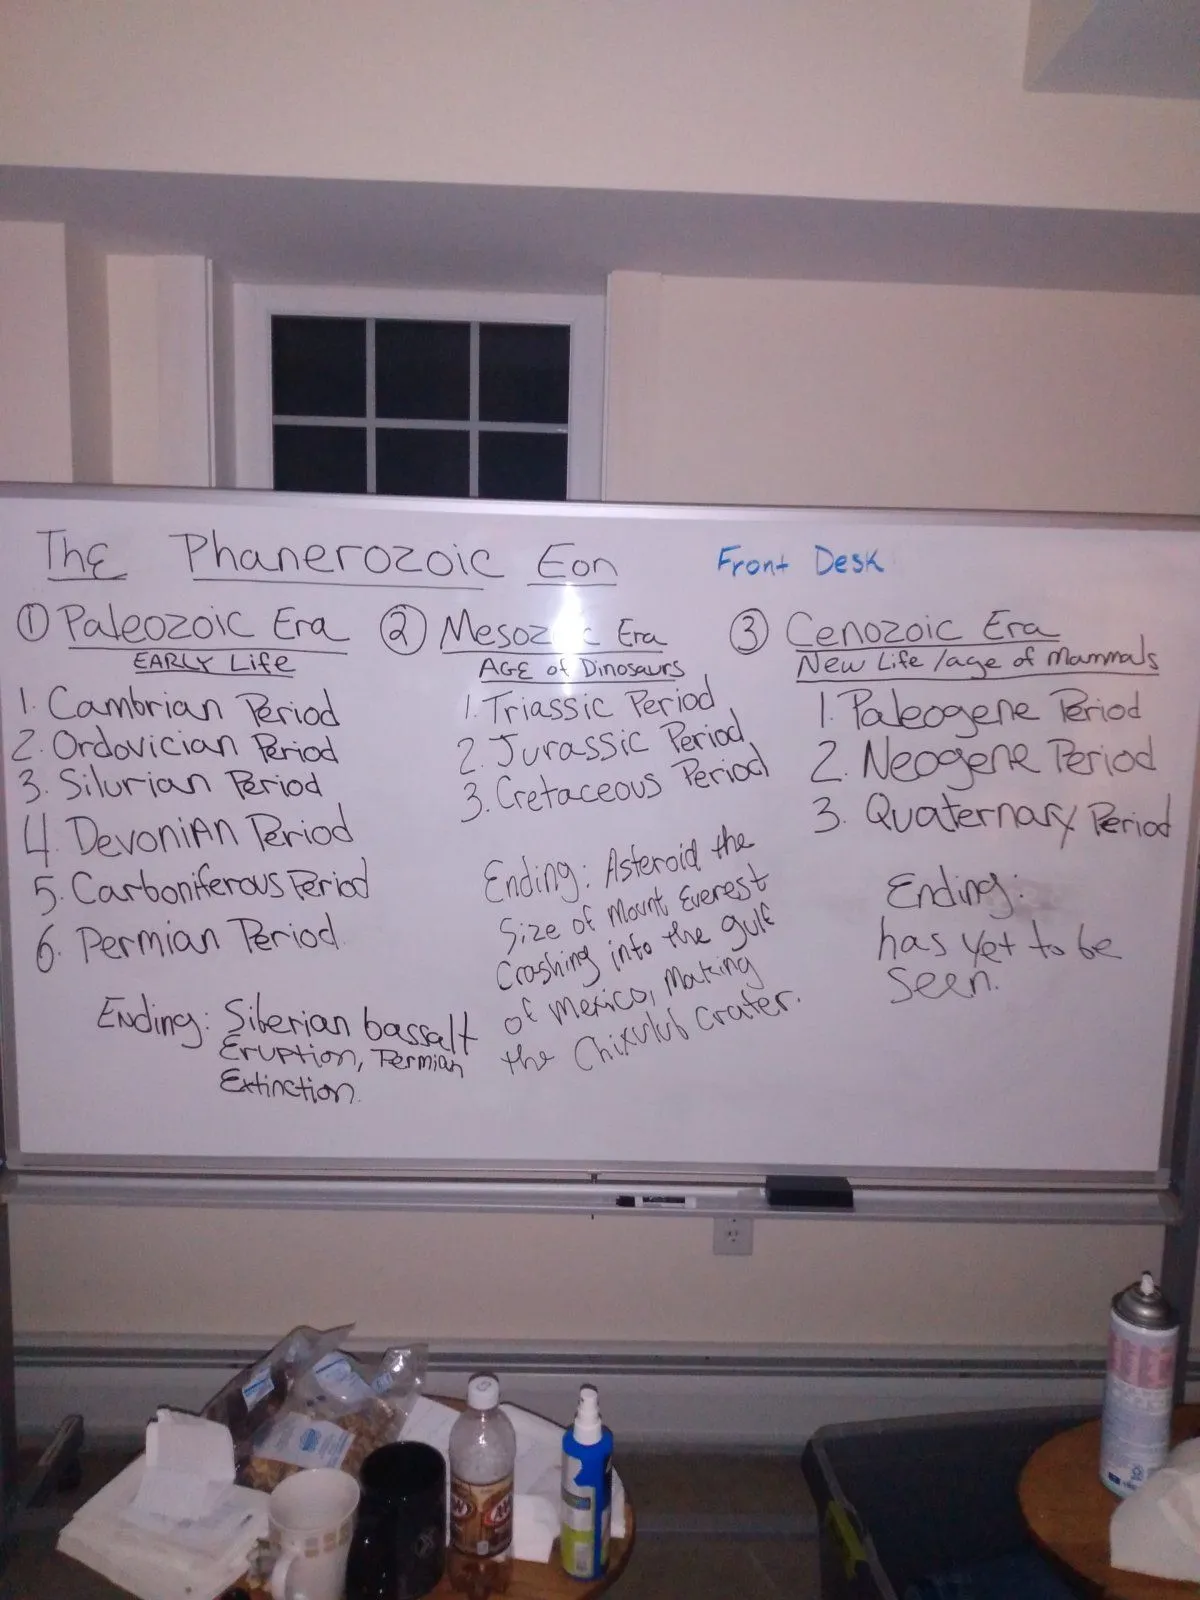 The Phanerozoic Eon
Front Desk
① Paleozoic Era
EARLY Life
1. Cambrian Period
2. Ordovician Period
3. Silurian Period
4. Devonian Period
5. Carboniferous Period
6. Permian Period
Ending: Siberian bassalt
Eruption, Permian
Extinction.
② Mesozoic Era
AGE of Dinosaurs
1. Triassic Period
2. Jurassic Period
3. Cretaceous Period
Ending: Asteroid the
Size of Mount Everest
Crashing into the gulf
of Mexico, Making
the Chixulub Crater.
③ Cenozoic Era
New Life / age of Mammals
1. Paleogene Period
2. Neogene Period
3. Quaternary Period
Ending:
has yet to be
Seen.
A&W